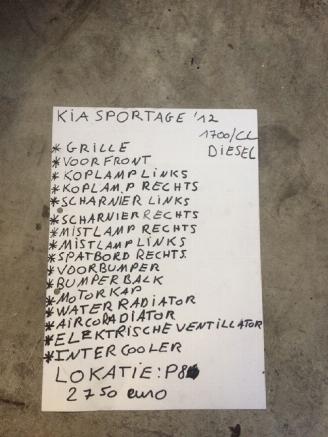 KIA SPORTAGE '12
1700/CC
DIESEL
* GRILLE
* VOORFRONT
* KOPLAMP LINKS
* KOPLAMP RECHTS
* SCHARNIER LINKS
* SCHARNIER RECHTS
* MISTLAMP RECHTS
* MISTLAMP LINKS
* SPATBORD RECHTS
* VOORBUMPER
* BUMPERBALK
* MOTORKAP
* WATER RADIATOR
* AIRCORADIATOR
* ELEKTRISCHE VENTILLATOR
* INTERCOOLER
LOKATIE: P8
2750 euro